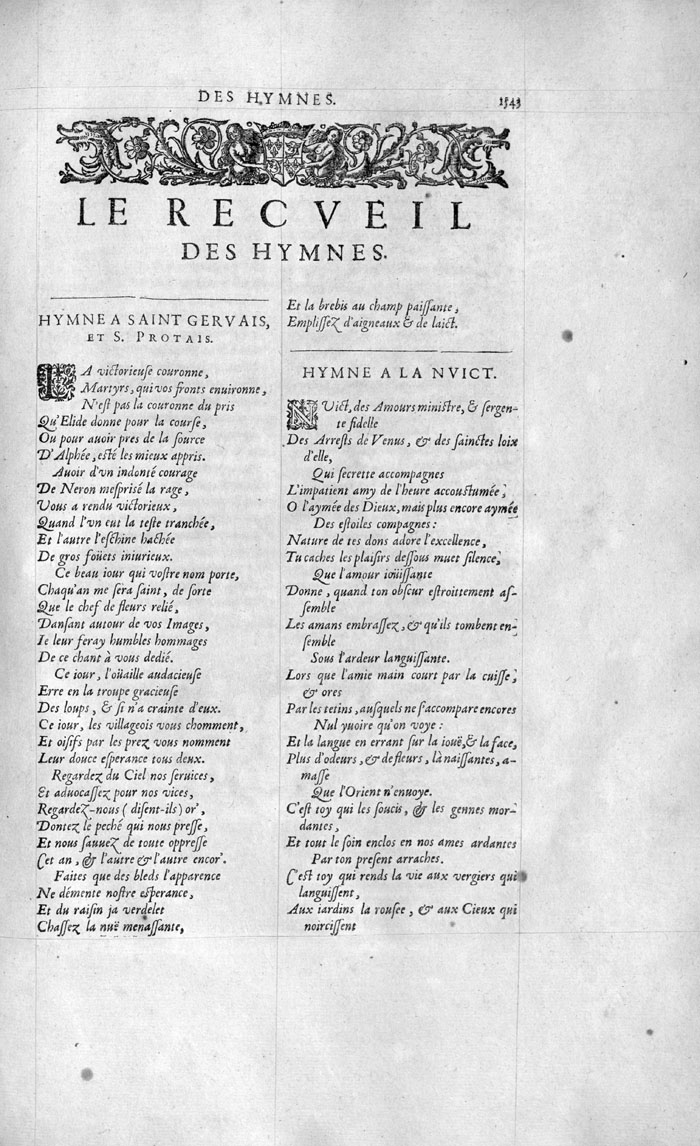 DES HYMNES. 1343
LE RECVEIL
DES HYMNES.
HYMNE A SAINT GERVAIS,
ET S. PROTAIS.
LA victorieuſe couronne,
Martyrs, qui vos fronts enuironne,
N'eſt pas la couronne du pris
Qu'Elide donne pour la courſe,
Ou pour auoir pres de la ſource
D'Alphée, eſté les mieux appris.
Auoir d'vn indonté courage
De Neron meſpriſé la rage,
Vous a rendu victorieux,
Quand l'vn eut la teſte tranchée,
Et l'autre l'eſchine hachée
De gros foüets iniurieux.
Ce beau iour qui voſtre nom porte,
Chaqu'an me ſera ſaint, de ſorte
Que le chef de fleurs relié,
Danſant autour de vos Images,
Ie leur feray humbles hommages
De ce chant à vous dedié.
Ce iour, l'oüaille audacieuſe
Erre en la troupe gracieuſe
Des loups, & ſi n'a crainte d'eux.
Ce iour, les villageois vous chomment,
Et oiſifs par les prez vous nomment
Leur douce eſperance tous deux.
Regardez du Ciel nos ſeruices,
Et aduocaſſez pour nos vices,
Regardez-nous (diſent-ils) or',
Dontez le peché qui nous preſſe,
Et nous ſauuez de toute oppreſſe
Cet an, & l'autre & l'autre encor'.
Faites que des bleds l'apparence
Ne démente noſtre eſperance,
Et du raiſin ja verdelet
Chaſſez la nuë menaſſante,
Et la brebis au champ paiſſante,
Empliſſez d'aigneaux & de laict.
HYMNE A LA NVICT.
NVict, des Amours miniſtre, & ſergen-
te fidelle
Des Arreſts de Venus, & des ſainctes loix
d'elle,
Qui ſecrette accompagnes
L'impatient amy de l'heure accouſtumée,
O l'aymée des Dieux, mais plus encore aymée
Des eſtoiles compagnes:
Nature de tes dons adore l'excellence,
Tu caches les plaiſirs deſſous muet ſilence,
Que l'amour ioüiſſante
Donne, quand ton obſcur eſtroittement aſ-
ſemble
Les amans embraſſez, & qu'ils tombent en-
ſemble
Sous l'ardeur languiſſante.
Lors que l'amie main court par la cuiſſe,
& ores
Par les tetins, auſquels ne ſ'accompare encores
Nul yuoire qu'on voye:
Et la langue en errant ſur la iouë, & la face,
Plus d'odeurs, & de fleurs, là naiſſantes, a-
maſſe
Que l'Orient n'enuoye.
C'eſt toy qui les ſoucis, & les gennes mor-
dantes,
Et tout le ſoin enclos en nos ames ardantes
Par ton preſent arraches.
C'eſt toy qui rends la vie aux vergiers qui
languiſſent,
Aux iardins la rouſee, & aux Cieux qui
noirciſſent